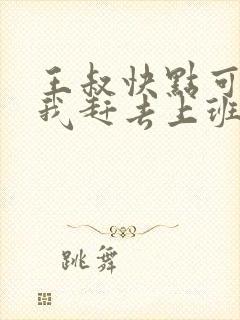 王叔快點可
我赶去上班
跳舞